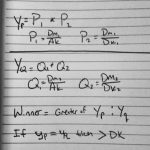 Yp = P1 * P2
P1 = Dm1/Ak P2 = Dm2/Dk1
YQ = Q1 * Q2
Q1 = Dm2/Ak Q2 = Dm1/Dk2
Winner = Greater of Yp : Yq
If yp = yq then > DK